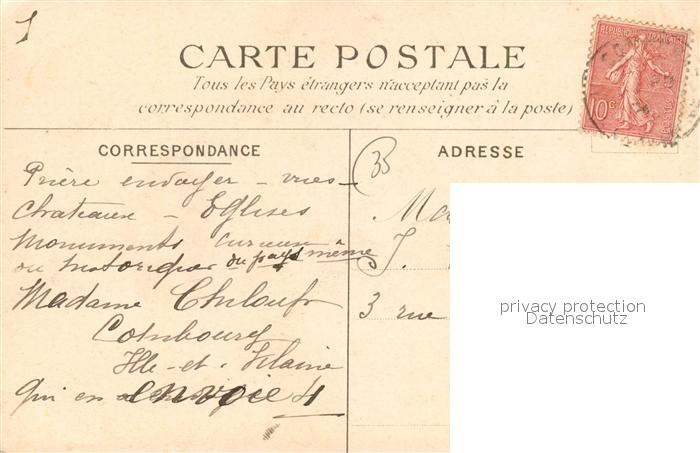 CARTE POSTALE
Tous les Pays étrangers n'acceptant pas la
correspondance au recto (se renseigner à la poste)
REPUBLIQUE FRANÇAISE
10c
POSTES
CORRESPONDANCE
ADRESSE
35
Prière envoyer – vues –
chateaux – Eglises
Monuments curieux
ou historique du pays même
Madame
Combourg
Ille-et-Vilaine
qui en envoie 4
Ma
J.
3 rue
privacy protection
Datenschutz